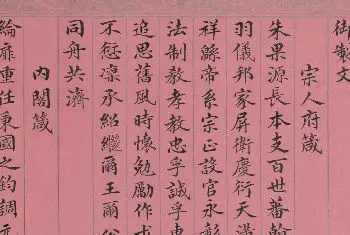 御製文
宗人府箴
朱果源長本支百世蕃翰
羽儀邦家屏衛慶衍天潢
祥繇帝系宗正設官永彰
法制敦孝敎忠孚誠孚惠
追思舊風時懷勉勵作求
不愆凜承紹繼爾王爾
同舟共濟
內閣箴
綸扉重任秉國之鈞調元